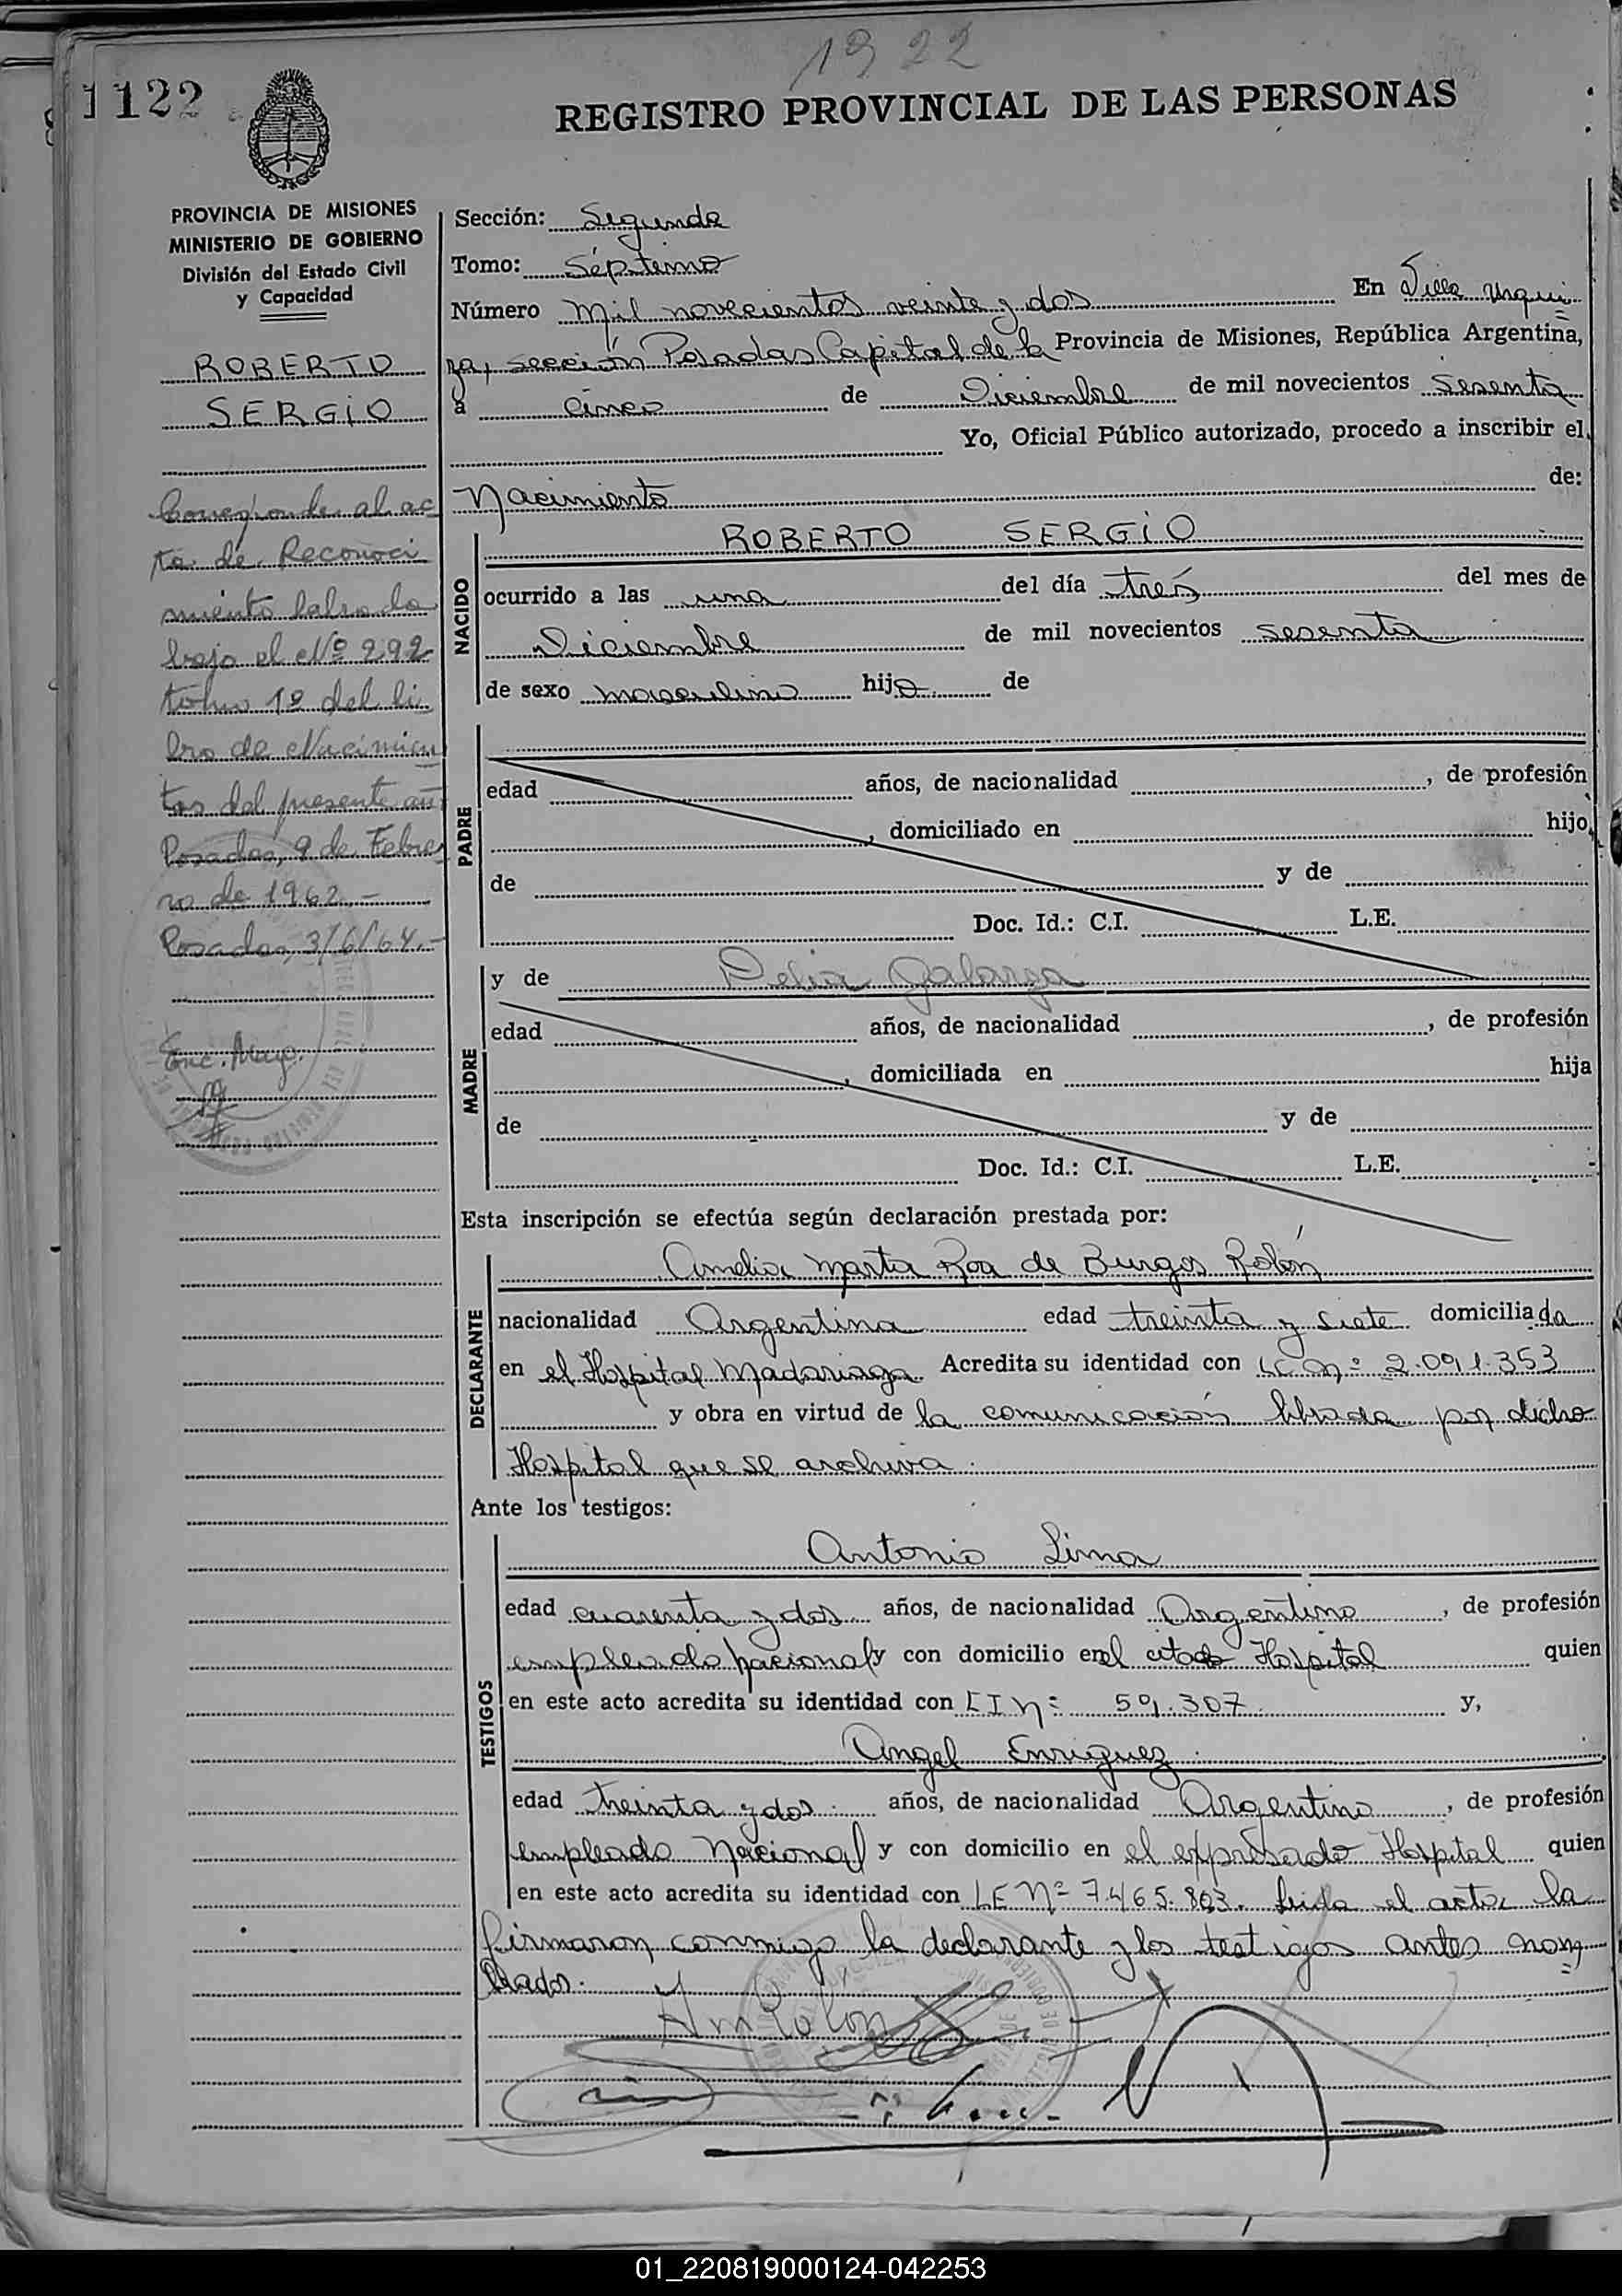 1922
1122
REGISTRO PROVINCIAL DE LAS PERSONAS
PROVINCIA DE MISIONES
MINISTERIO DE GOBIERNO
División del Estado Civil
y Capacidad
ROBERTO
SERGIO
Corresponde al ac
ta de Reconoci
miento labrada
bajo el Nº 292
tomo 1º del li
bro de Nacimien
tos del presente añ
Posadas, 9 de Febre
ro de 1962.-
Posadas, 3/6/64.-
Enc. Mayo.
Sección: Segunda
Tomo: Séptimo
Número mil novecientos veinte y dos En Villa Urqui
za, sección Posadas Capital de la Provincia de Misiones, República Argentina,
a cinco de Diciembre de mil novecientos sesenta
Yo, Oficial Público autorizado, procedo a inscribir el
Nacimiento de:
NACIDO
ROBERTO SERGIO
ocurrido a las una del día tres del mes de
Diciembre de mil novecientos sesenta
de sexo masculino hijo de
PADRE
edad años, de nacionalidad , de profesión
, domiciliado en hijo
de y de
Doc. Id.: C.I. L.E.
MADRE
y de Delia Galarza
edad años, de nacionalidad , de profesión
, domiciliada en hija
de y de
Doc. Id.: C.I. L.E.
Esta inscripción se efectúa según declaración prestada por:
DECLARANTE
Amelia Marta Roa de Burgos Rolón
nacionalidad Argentina edad treinta y siete domiciliada
en el Hospital Madariaga Acredita su identidad con LC nº 2.091.353
y obra en virtud de la comunicación librada por dicho
Hospital que se archiva.
Ante los testigos:
TESTIGOS
Antonio Lima
edad cuarenta y dos años, de nacionalidad Argentino , de profesión
empleado nacional y con domicilio en el citado Hospital quien
en este acto acredita su identidad con CI nº 59.307 y,
Angel Enriquez
edad treinta y dos años, de nacionalidad Argentino , de profesión
empleado Nacional y con domicilio en el expresado Hospital quien
en este acto acredita su identidad con LE Nº 7.465.803. Leída el acta la
firmaron conmigo la declarante y los testigos antes nom
brados.
AmRolon
01_220819000124-042253